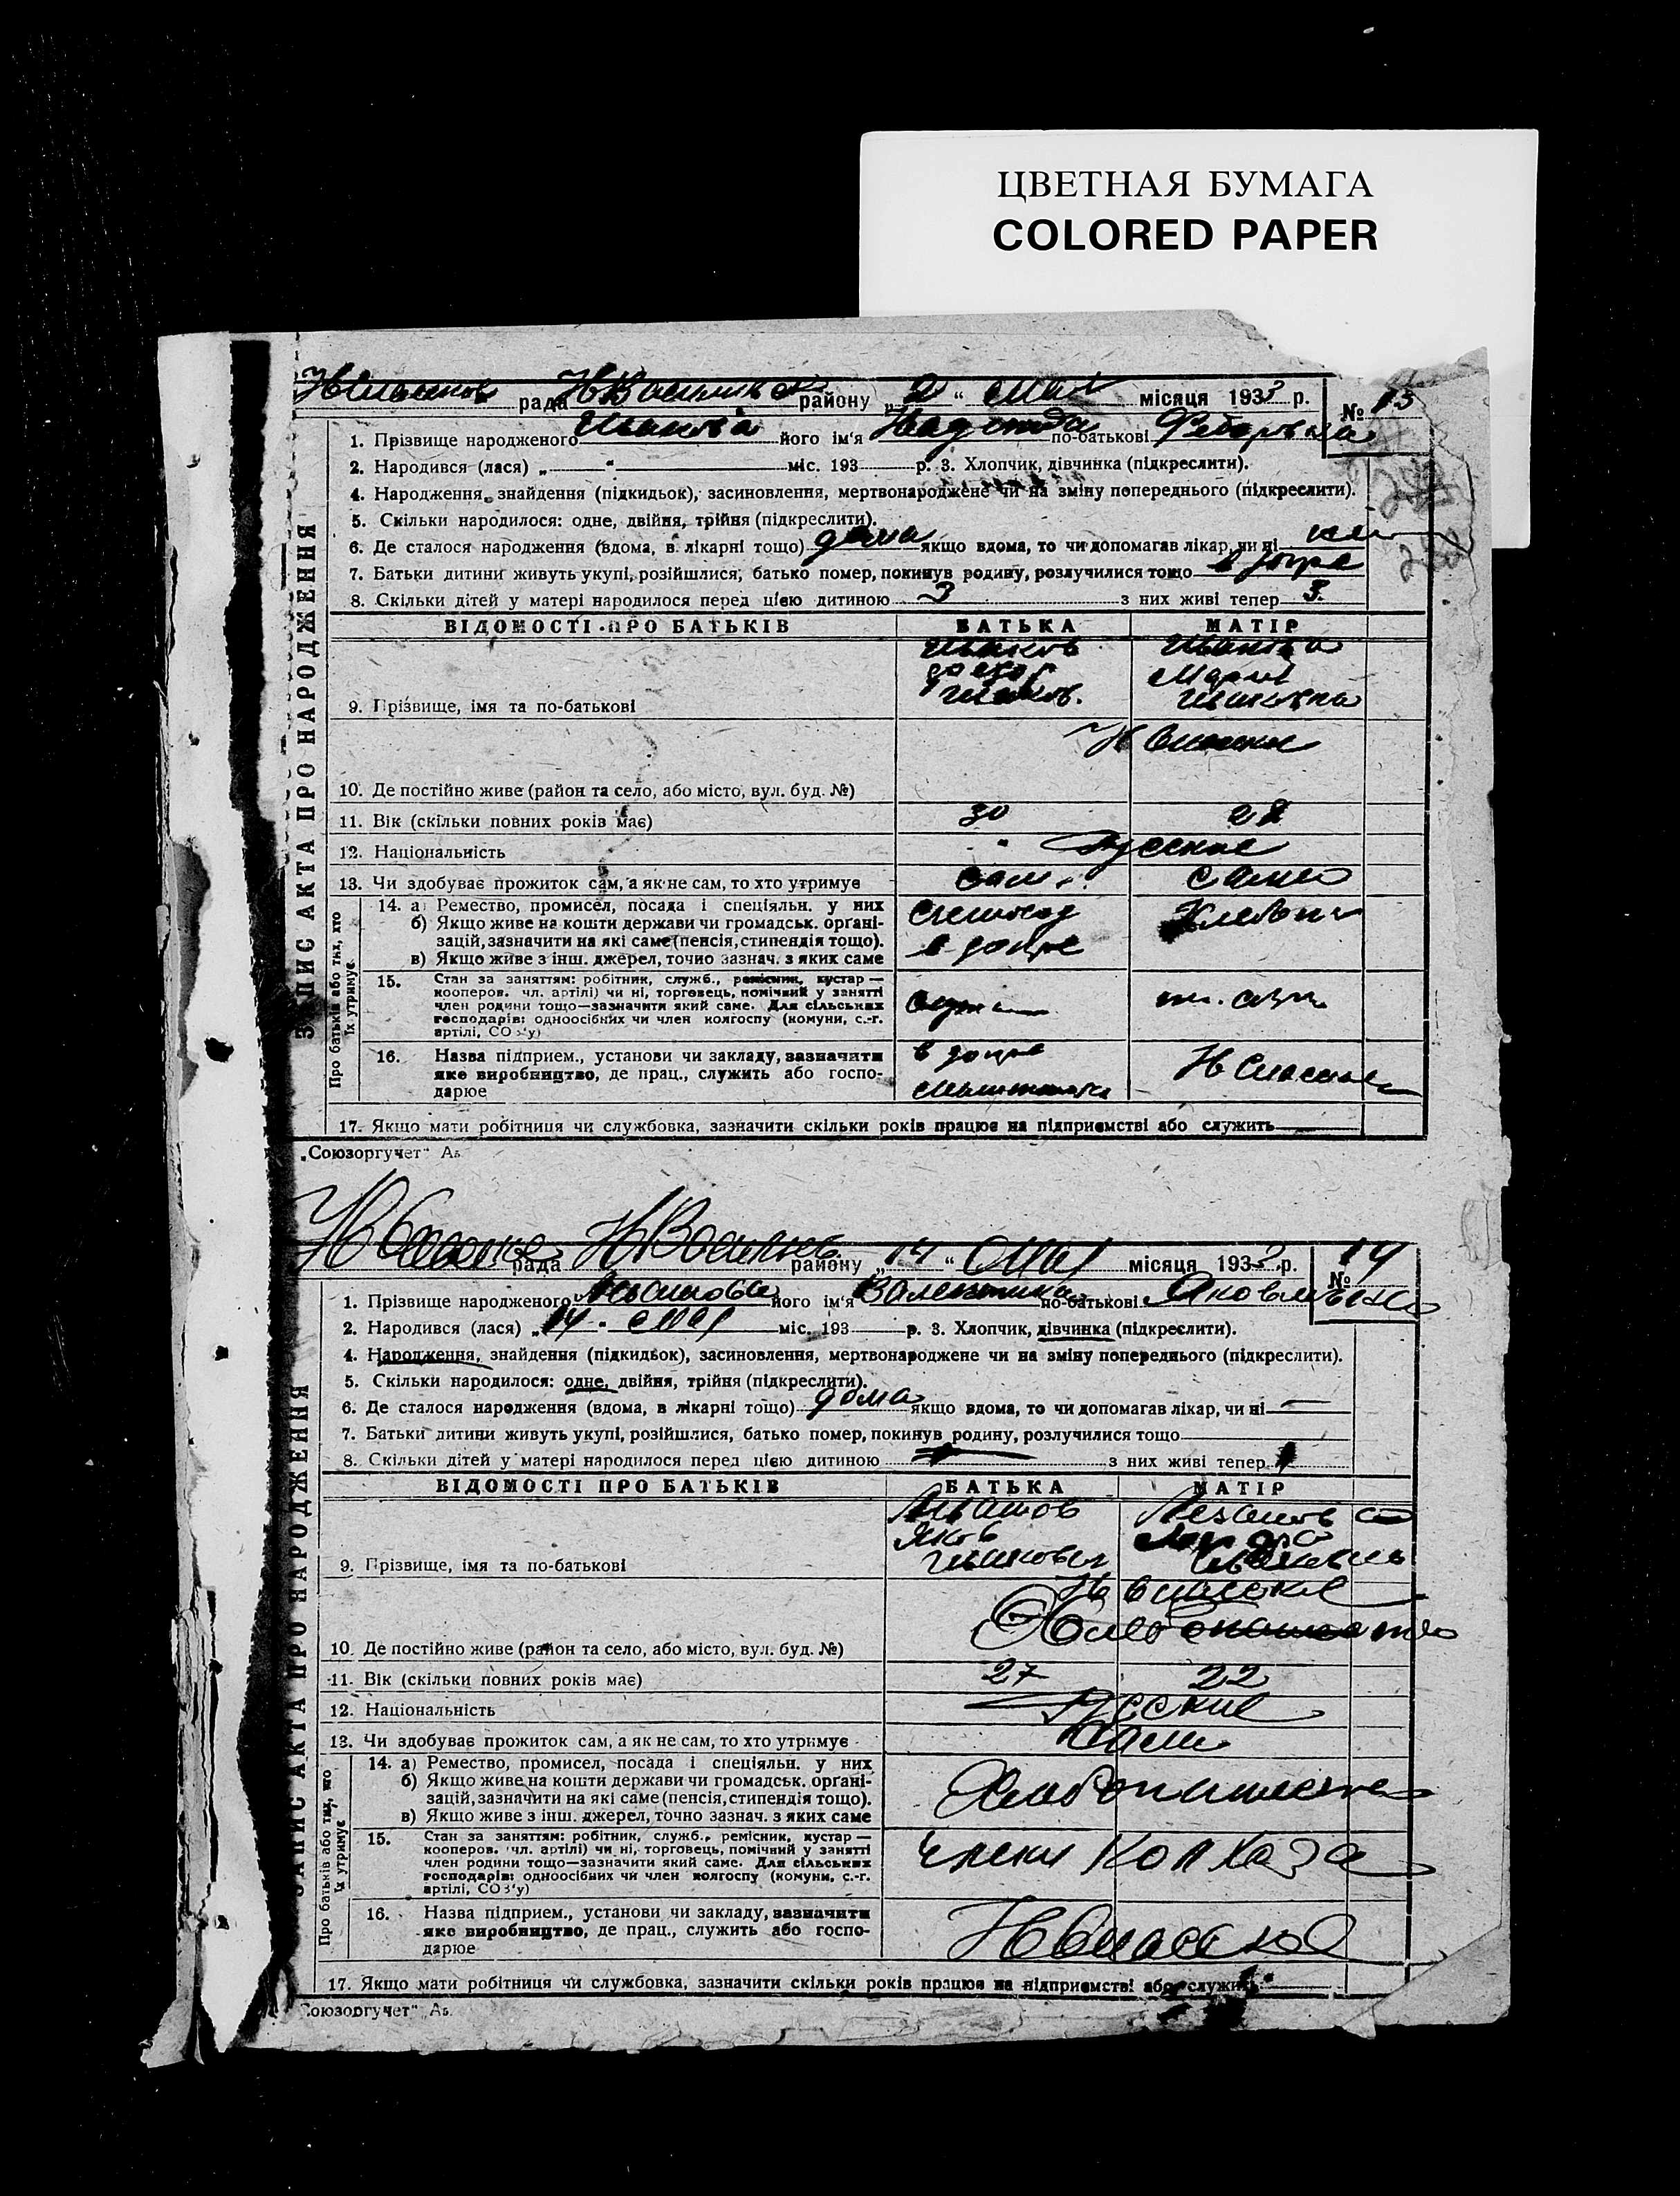 ЦВЕТНАЯ БУМАГА
COLORED PAPER
рада району „2“ мая місяця 1933 р. № 13
1. Прізвище народженого Иванова його ім'я Надежда по-батькові
2. Народився (лася) „ “ міс. 193 р. 3. Хлопчик, дівчинка (підкреслити).
4. Народження, знайдення (підкидьок), засиновлення, мертвонароджене чи на зміну попереднього (підкреслити).
5. Скільки народилося: одне, двійня, трійня (підкреслити).
6. Де сталося народження (вдома, в лікарні тощо) дома якщо вдома, то чи допомагав лікар, чи ні
7. Батьки дитини живуть укупі, розійшлися, батько помер, покинув родину, розлучилися тощо в допре
8. Скільки дітей у матері народилося перед цією дитиною 3 з них живі тепер 3.
ВІДОМОСТІ ПРО БАТЬКІВ БАТЬКА МАТІР
Иванов Иванова
Мария
9. Прізвище, імя та по-батькові Ивановна
10. Де постійно живе (район та село, або місто, вул. буд. №)
11. Вік (скільки повних років має) 30 28
12. Національність " Русские
13. Чи здобуває прожиток сам, а як не сам, то хто утримує сам сама
14. а) Ремество, промисел, посада і спеціяльн. у них
б) Якщо живе на кошти держави чи громадськ. органі-
зацій, зазначити на які саме (пенсія, стипендія тощо). в допре
в) Якщо живе з інш. джерел, точно зазнач. з яких саме
15. Стан за заняттям: робітник, служб., ремісник, кустар —
кооперов. чл. артілі) чи ні, торговець, помічний у занятті
член родини тощо—зазначити який саме. Для сільських
господарів: одноосібних чи член колгоспу (комуни, с.-г.
артілі, СОЗ'у)
16. Назва підприєм., установи чи закладу, зазначити в допре
яке виробництво, де прац., служить або госпо-
дарює
17. Якщо мати робітниця чи службовка, зазначити скільки років працює на підприємстві або служить
ЗАПИС АКТА ПРО НАРОДЖЕННЯ
Про батьків або тих, хто їх утримує
„Союзоргучет“ Ав
рада району „14“ мая місяця 1933 р. № 14
1. Прізвище народженого його ім'я Валентина по-батькові Яковлевна
2. Народився (лася) „14“ мая міс. 193 р. 3. Хлопчик, дівчинка (підкреслити).
4. Народження, знайдення (підкидьок), засиновлення, мертвонароджене чи на зміну попереднього (підкреслити).
5. Скільки народилося: одне, двійня, трійня (підкреслити).
6. Де сталося народження (вдома, в лікарні тощо) дома якщо вдома, то чи допомагав лікар, чи ні —
7. Батьки дитини живуть укупі, розійшлися, батько помер, покинув родину, розлучилися тощо
8. Скільки дітей у матері народилося перед цією дитиною з них живі тепер
ВІДОМОСТІ ПРО БАТЬКІВ БАТЬКА МАТІР
Яков
9. Прізвище, імя та по-батькові Иванович
10. Де постійно живе (район та село, або місто, вул. буд. №)
11. Вік (скільки повних років має) 27 22
12. Національність Русские
13. Чи здобуває прожиток сам, а як не сам, то хто утримує Сами
14. а) Ремество, промисел, посада і спеціяльн. у них
б) Якщо живе на кошти держави чи громадськ. органі-
зацій, зазначити на які саме (пенсія, стипендія тощо).
в) Якщо живе з інш. джерел, точно зазнач. з яких саме
15. Стан за заняттям: робітник, служб., ремісник, кустар —
кооперов. чл. артілі) чи ні, торговець, помічний у занятті
член родини тощо—зазначити який саме. Для сільських члени Колхоза
господарів: одноосібних чи член колгоспу (комуни, с.-г.
артілі, СОЗ'у)
16. Назва підприєм., установи чи закладу, зазначити
яке виробництво, де прац., служить або госпо-
дарює
17. Якщо мати робітниця чи службовка, зазначити скільки років працює на підприємстві або служить
ЗАПИС АКТА ПРО НАРОДЖЕННЯ
Про батьків або тих, хто їх утримує
Союзоргучет“ Ав.